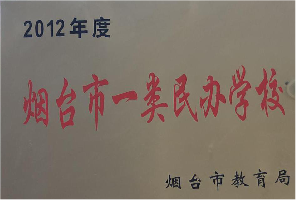 2012年度
烟台市一类民办学校
烟台市教育局